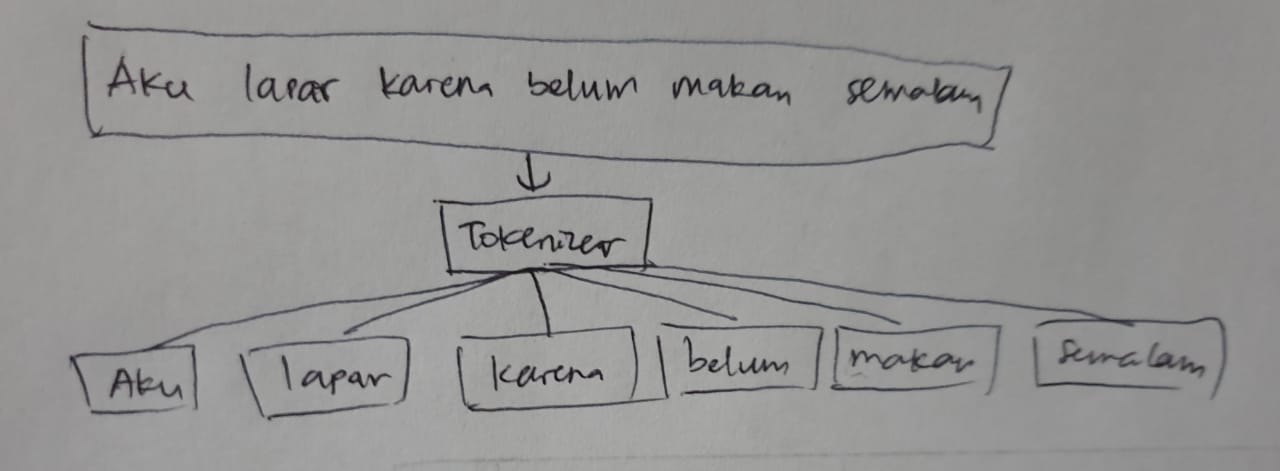 Aku lapar karena belum makan semalam
Tokenizer
Aku lapar karena belum makan semalam